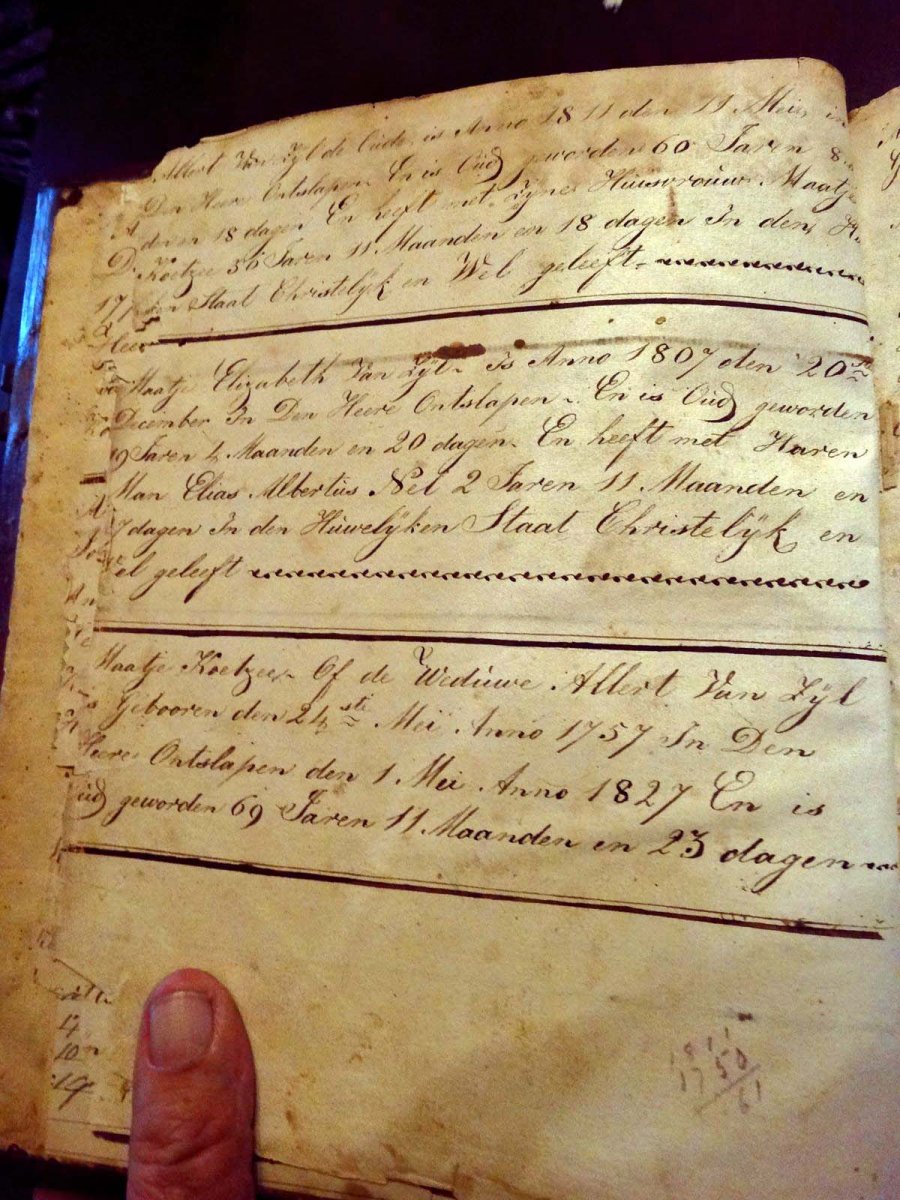 Albert Van Zÿl de Oude is Anno 1811 den 11 Mei in
Den Heere Ontslapen En is Oud geworden 60 Jaren 8
den en 18 dagen En heeft met Zÿne Huüsvrouw Maatje
Koetzee 36 Jaren 11 Maanden en 18 dagen In den
Staat Christelÿk en Wel geleeft
Maatje Elizabeth Van Zÿl Is Anno 1807 den 20ste
December In Den Heere Ontslapen En is Oud geworden
19 Jaren 4 Maanden en 20 dagen En heeft met Haren
Man Elias Albertüs Nel 2 Jaren 11 Maanden en
7 dagen In den Hüwelÿken Staat Christelÿk en
el geleeft
Maatje Koetzee Of de Wedüwe Albert Van Zÿl
Gebooren den 24ste Meï Anno 1757 In Den
Heere Ontslapen den 1 Mei Anno 1827 En is
üd geworden 69 Jaren 11 Maanden en 23 dagen
17
Heer
4
10
19
1811
1750
61